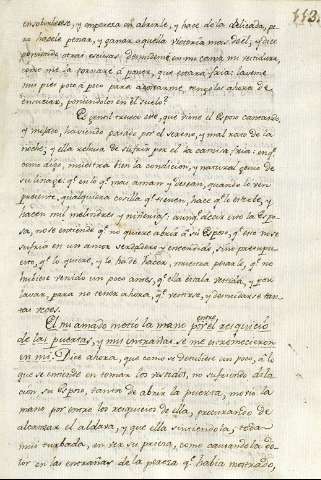 113.
ensobervecese, y empereza en abrirle, y hace de la delicada, pa-
ra hacele penar, y ganar aquella victoria mas de el, y dice
poniendo otras escusas: desnudeme mi camisa mi vestidura,
como me la tornaré à poner, que estará fria: lavéme
mis pies poco à poco para acostarme, tengolos ahora de
ensuciar, poniendolos en el suelo?
Es gentil trueco este, que viene el Esposo cansando,
y mojado, haviendo pasado por el sereno, y mal rato de la
noche; y ella rehusa de sufrir por el la camisa fria: en q.e
como digo, muestra bien la condicion, y natural genio de
su linage: q.e en lo q.e mas aman y desean, quando lo ven
presente, qualquiera cosilla q.e tienen, hace q.e les estorbe, y
hacen mil melindres y niñerias: aunq.e decir esto la Espo-
sa, no se entiende q.e no quiere abrir à su Esposo, q.e eso no se
sufria en un amor verdadero y encendido, sino presupu-
esto, q.e lo quiere, y lo ha de hacer, muestra pesarle, q.e no
hubiese venido un poco antes, q.e ella estaba vestida, y por
lavar, para no tener ahora, q.e vestirse, y desnudarse tan-
tas veces.
El mi amado metió la mano por entre el resquicio
de las puertas, y mis entrañas se me estremecieron
en mi. Dice ahora, que como se detubiese un poco, à lo
que se entiende en tomar los vestidos, no sufriendo dila-
cion su Esposo, tentó de abrir la puerta, metió la
mano por entre los resquicios de ella, procurando de
alcanzar el aldava, y que ella sintiendolo, toda
mui turbada, en ver su priesa, como causandola do-
lor en las entrañas de la pereza q.e habia mostrado,